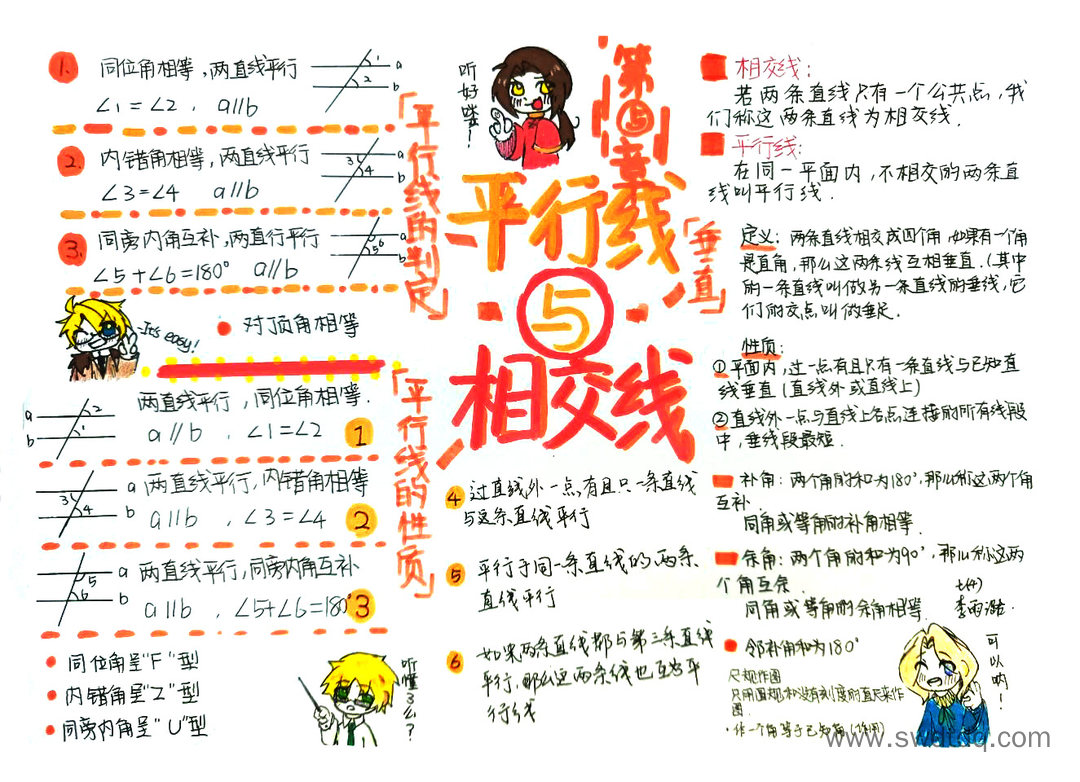 第五章
平行线
与
相交线
听好喽!
「平行线的判定」
1.
同位角相等,两直线平行
∠1=∠2, a∥b
1
2
a
b
2.
内错角相等,两直线平行
∠3=∠4 a∥b
3
4
a
b
3.
同旁内角互补,两直行平行
∠5+∠6=180° a∥b
5
6
a
b
It's easy!
对顶角相等
「平行线的性质」
a
b
2
1
两直线平行,同位角相等.
a∥b , ∠1=∠2
1
3
4
a
b
两直线平行,内错角相等
a∥b , ∠3=∠4
2
5
6
a
b
两直线平行,同旁内角互补
a∥b , ∠5+∠6=180°
3
同位角呈"F"型
内错角呈"Z"型
同旁内角呈"U"型
听懂了么?
4
过直线外一点有且只一条直线
与这条直线平行
5
平行于同一条直线的两条
直线平行
6
如果两条直线都与第三条直线
平行,那么这两条线也互为平
行线
相交线:
若两条直线只有一个公共点,我
们称这两条直线为相交线.
平行线:
在同一平面内,不相交的两条直
线叫平行线.
「垂直」
定义:两条直线相交成四个角,如果有一个角
是直角,那么这两条线互相垂直.(其中
的一条直线叫做另一条直线的垂线,它
们的交点叫做垂足.
性质:
①平面内,过一点有且只有一条直线与已知直
线垂直(直线外或直线上)
②直线外一点与直线上各点连接的所有线段
中,垂线段最短.
补角:两个角的和为180°,那么称这两个角
互补.
同角或等角的补角相等.
余角:两个角的和为90°,那么称这两
个角互余.
同角或等角的余角相等.
邻补角和为180°
尺规作图
只用圆规和没有刻度的直尺来作
图.
·作一个角等于已知角(作用)
可以哟!
www.swdtdq.com